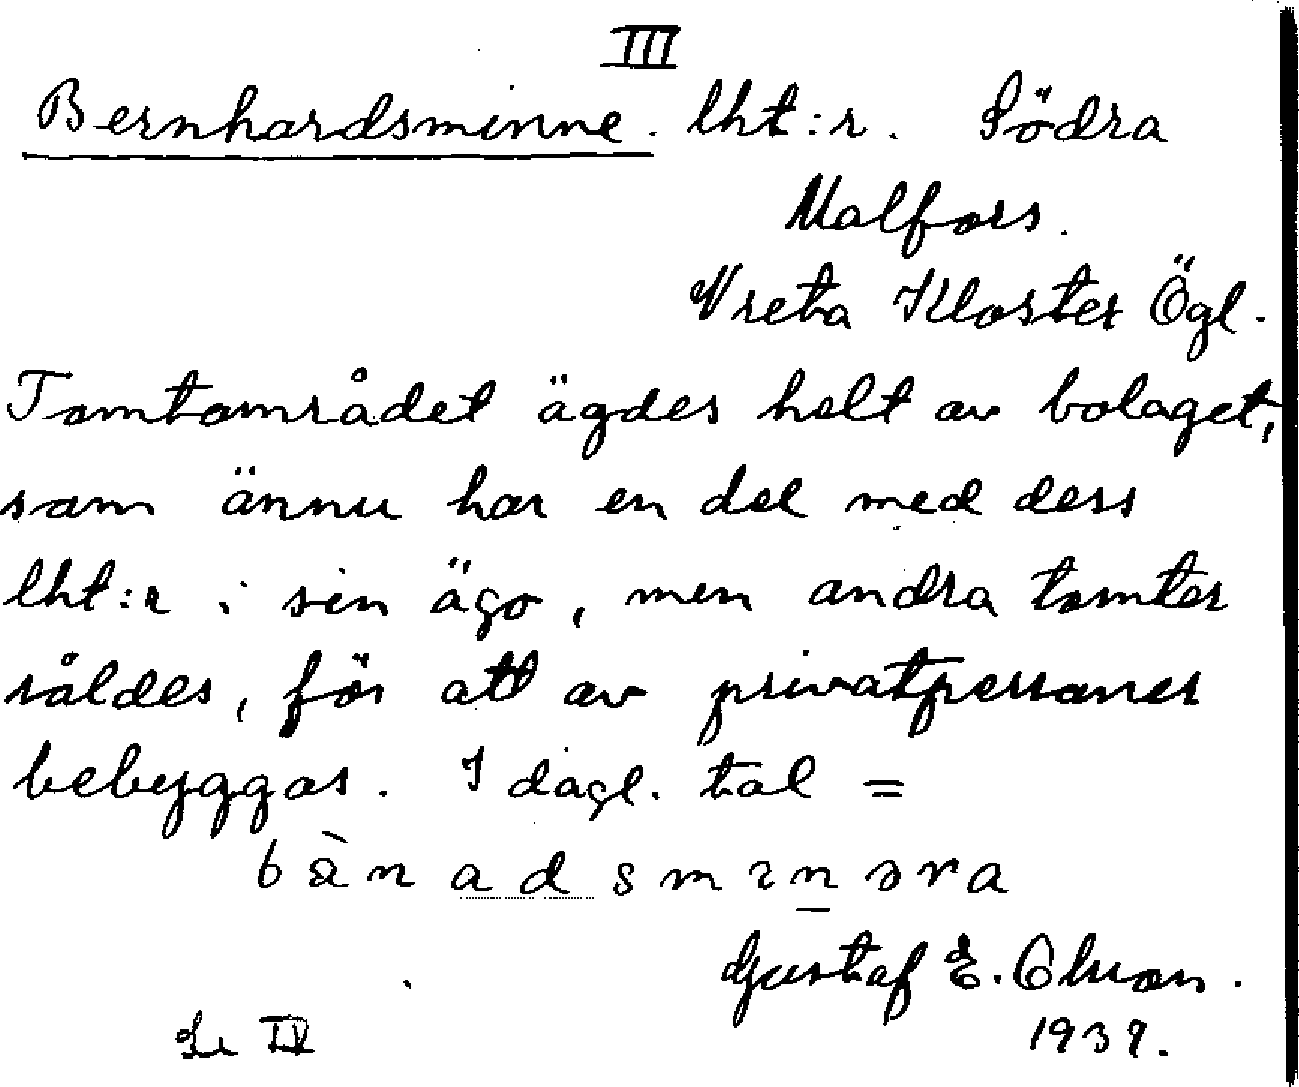 III
Bernhardsminne. lht:r. Södra
Malfors.
Vreta Kloster Ögl.
Tomtområdet ägdes helt av bolaget,
som ännu har en del med dess
lht:r i sin ägo, men andra tomter
såldes, för att av privatpersoner
bebyggas. I dagl. tal =
Gustaf E. Olsson.
Se IV 1939.